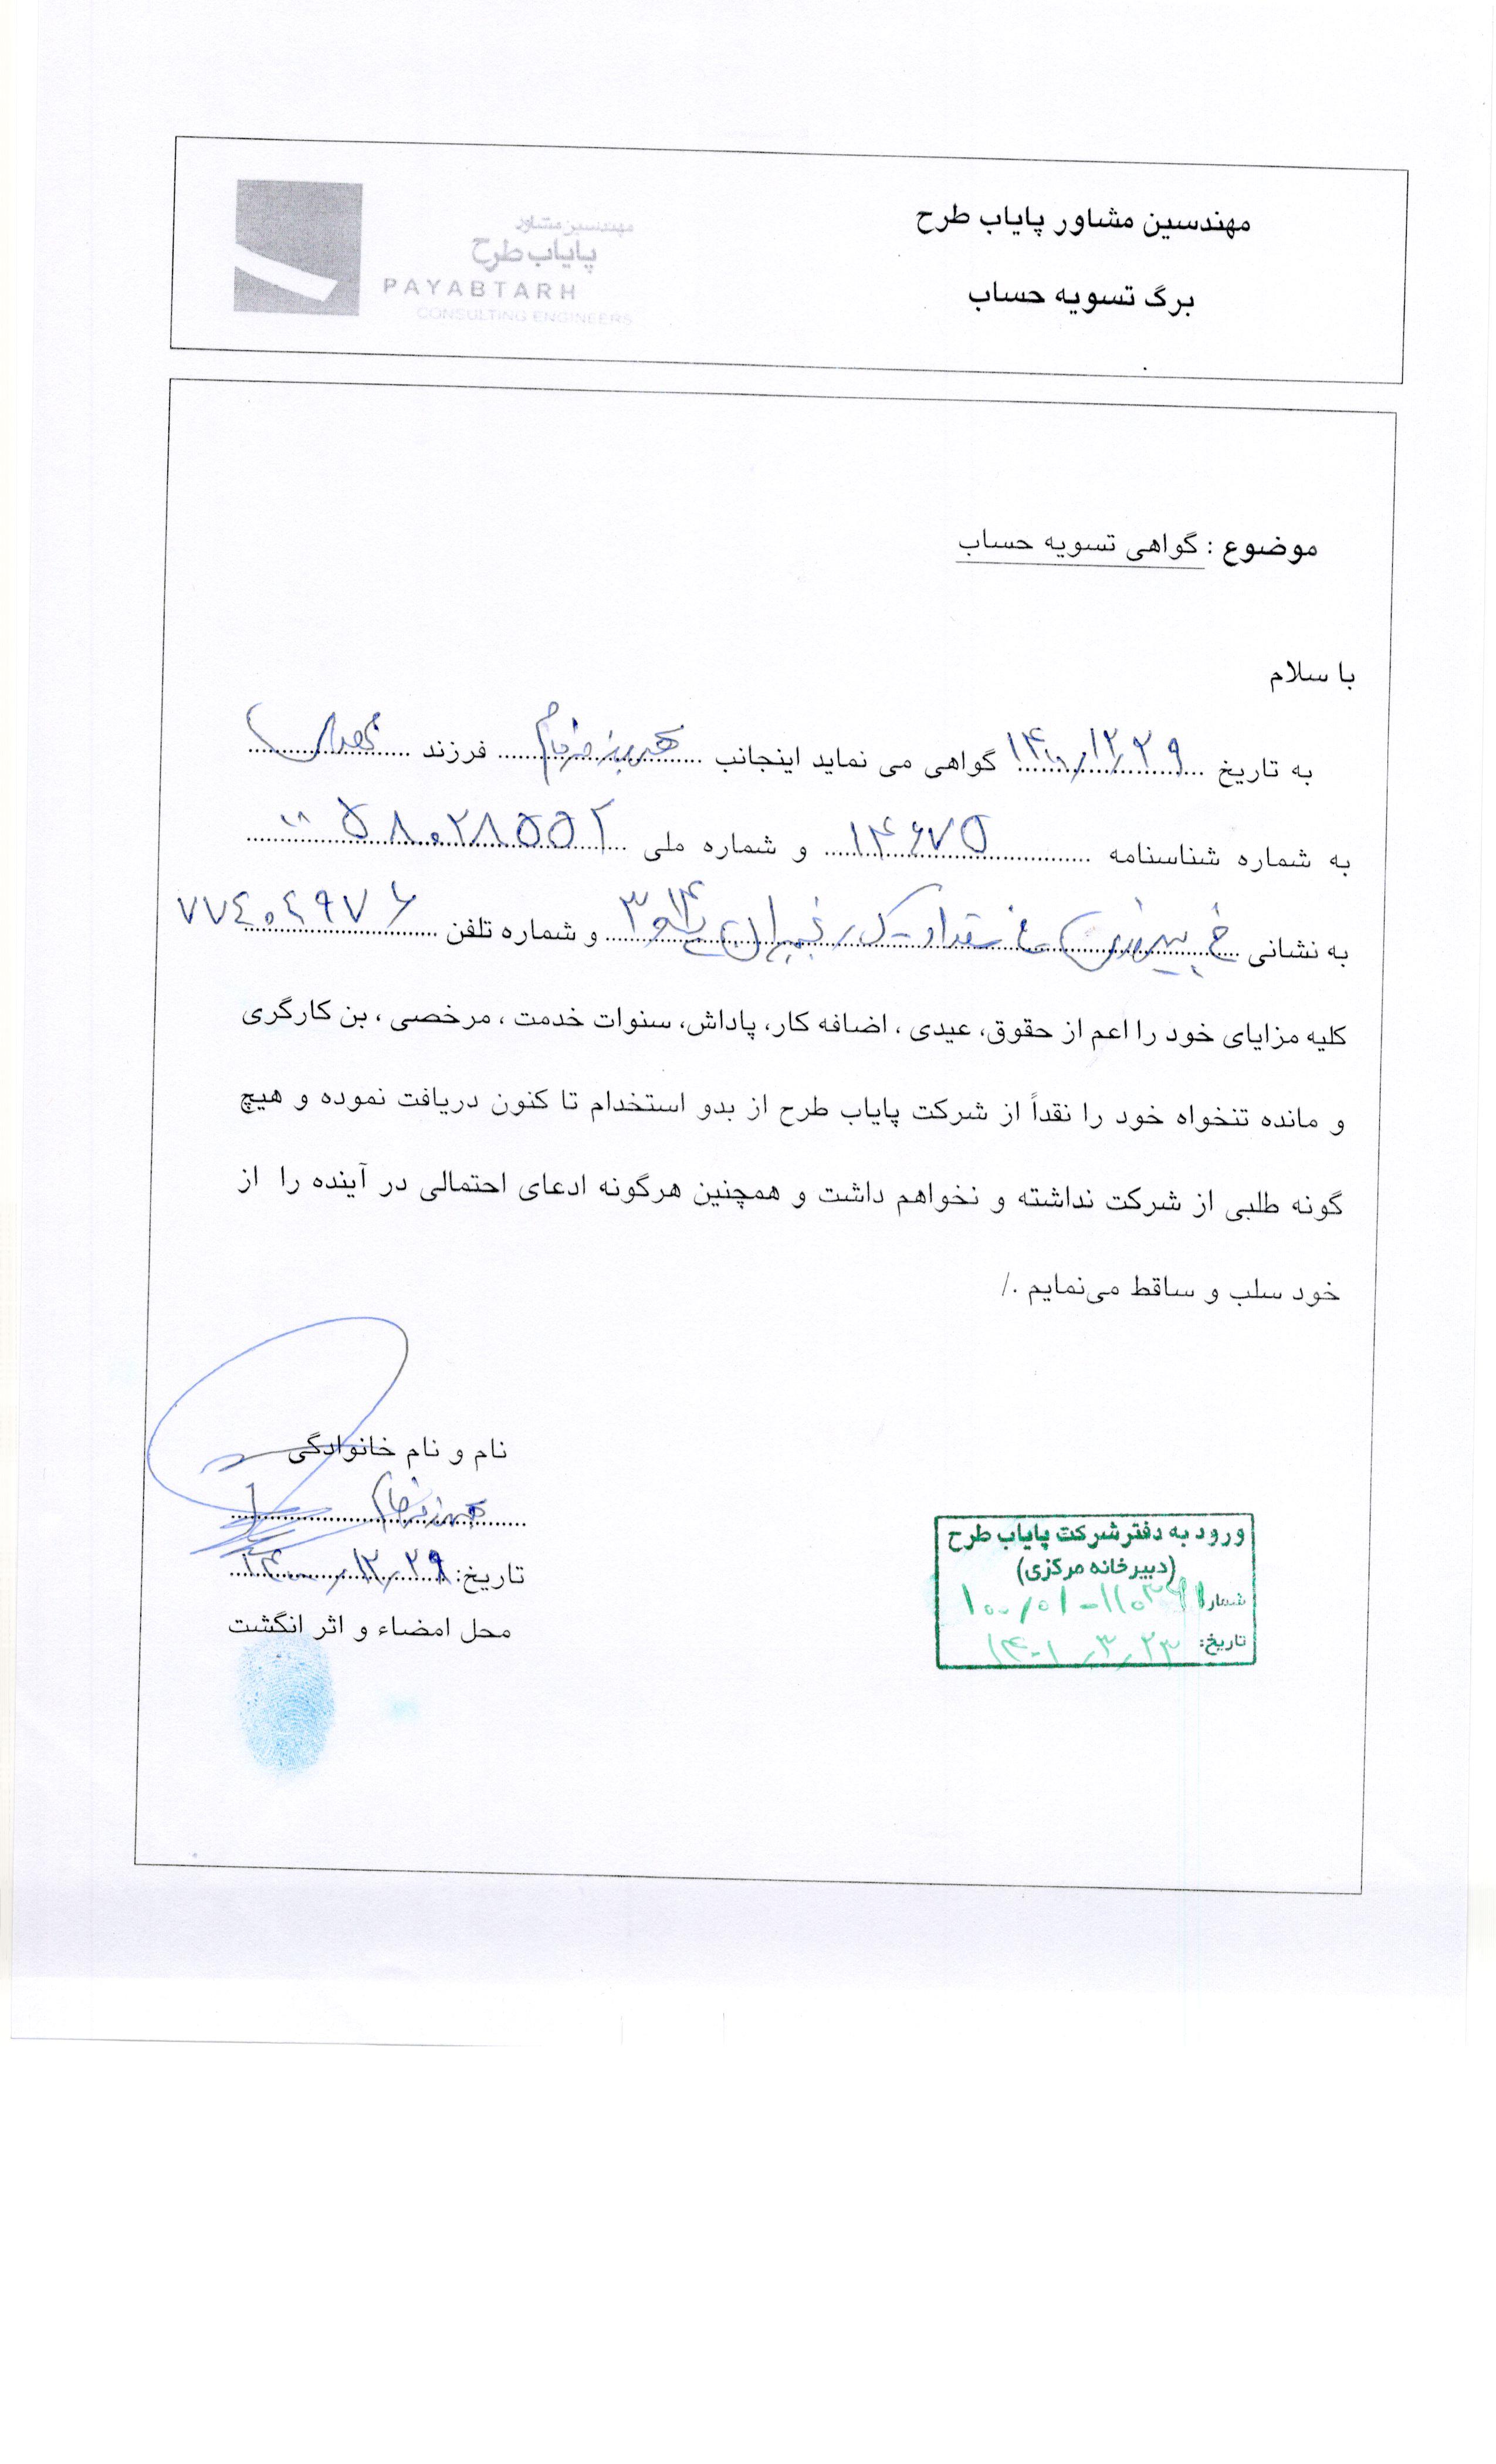 مهندسین مشاور پایاب طرح
برگ تسویه حساب
مهندسین مشاور
پایاب طرح
PAYABTARH
CONSULTING ENGINEERS
موضوع : گواهی تسویه حساب
با سلام
به تاریخ ۱۴۰۰/۱۲/۲۹ گواهی می نماید اینجانب فرزند
به شماره شناسنامه ۱۴۶۷۵ و شماره ملی
به نشانی و شماره تلفن ۷۷۴۰۴۹۷۶
کلیه مزایای خود را اعم از حقوق، عیدی ، اضافه کار، پاداش، سنوات خدمت ، مرخصی ، بن کارگری
و مانده تنخواه خود را نقداً از شرکت پایاب طرح از بدو استخدام تا کنون دریافت نموده و هیچ
گونه طلبی از شرکت نداشته و نخواهم داشت و همچنین هرگونه ادعای احتمالی در آینده را از
خود سلب و ساقط می‌نمایم ./
نام و نام خانوادگی
تاریخ: ۱۴۰۰/۱۲/۲۹
محل امضاء و اثر انگشت
ورود به دفتر شرکت پایاب طرح
(دبیرخانه مرکزی)
شماره
تاریخ: ۱۴۰۱/۳/۲۳